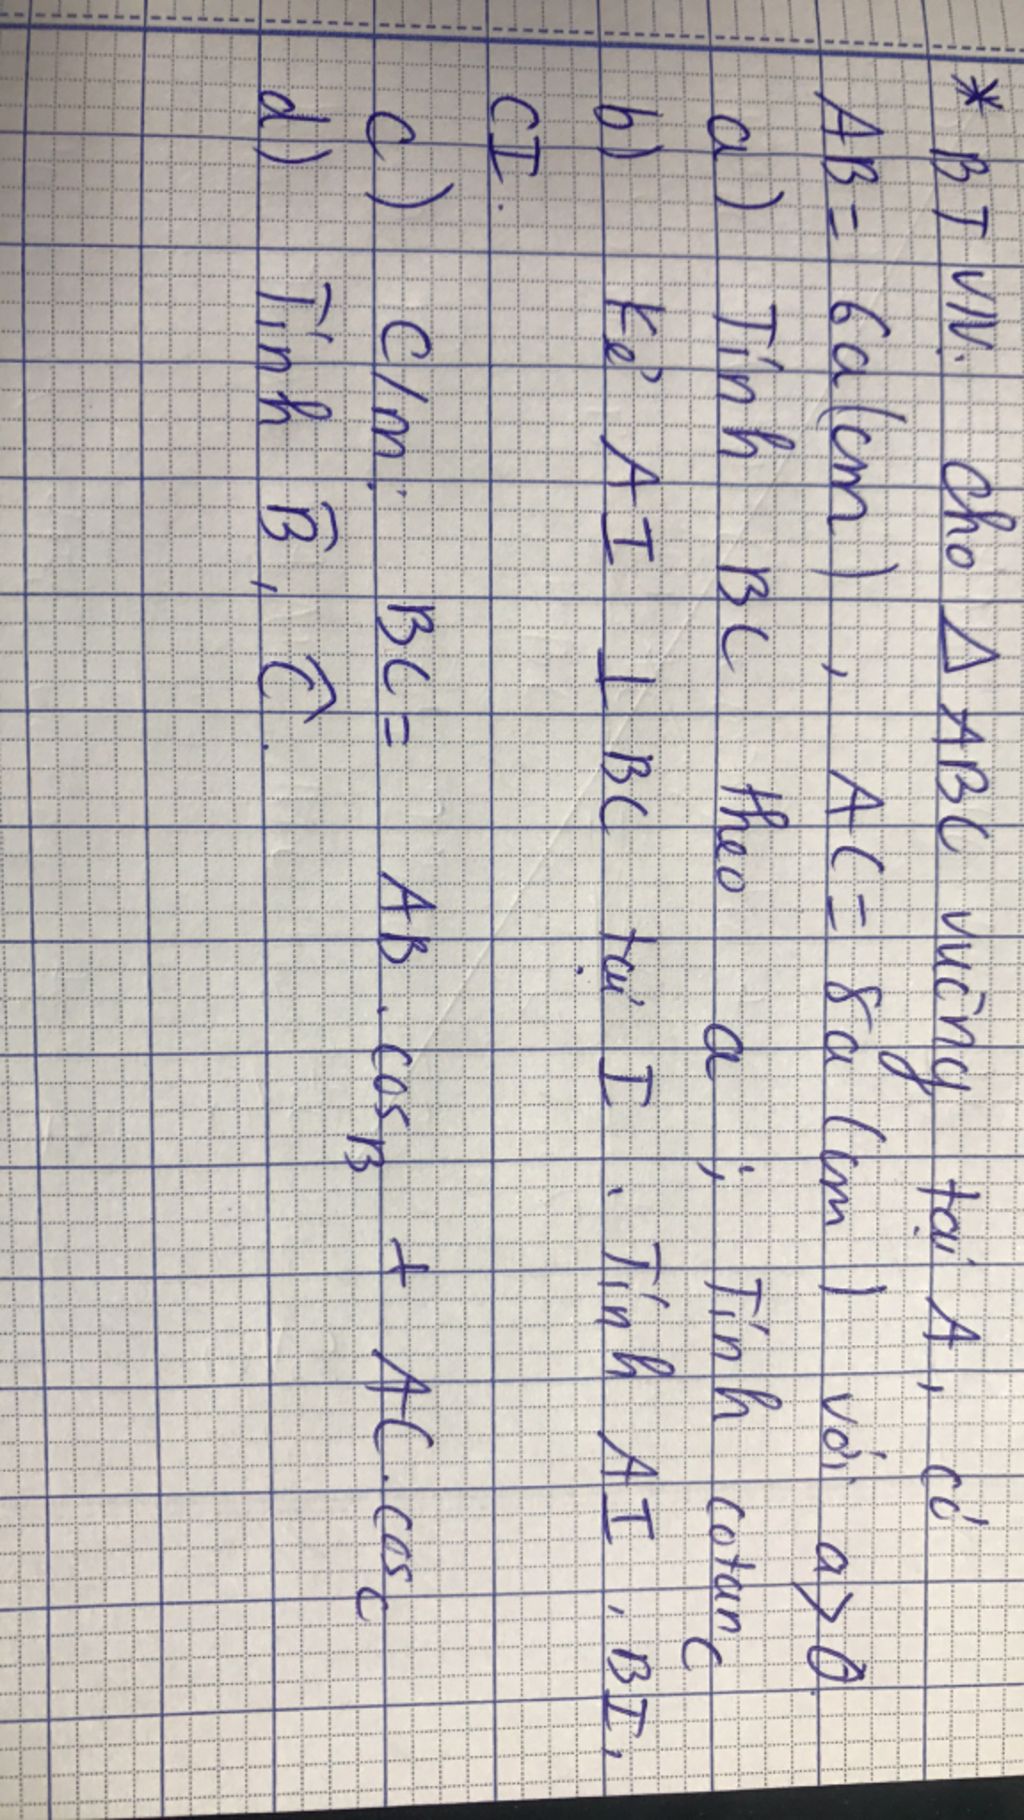 * BTVN: Cho △ABC vuông tại A, có
AB = 6a (cm), AC = 8a (cm) với a > 0
a) Tính BC theo a ; Tính cotan C
b) Kẻ AI ⊥ BC tại I. Tính AI, BI,
CI.
c) C/m: BC = AB . cos B + AC . cos C
d) Tính B̂, Ĉ.